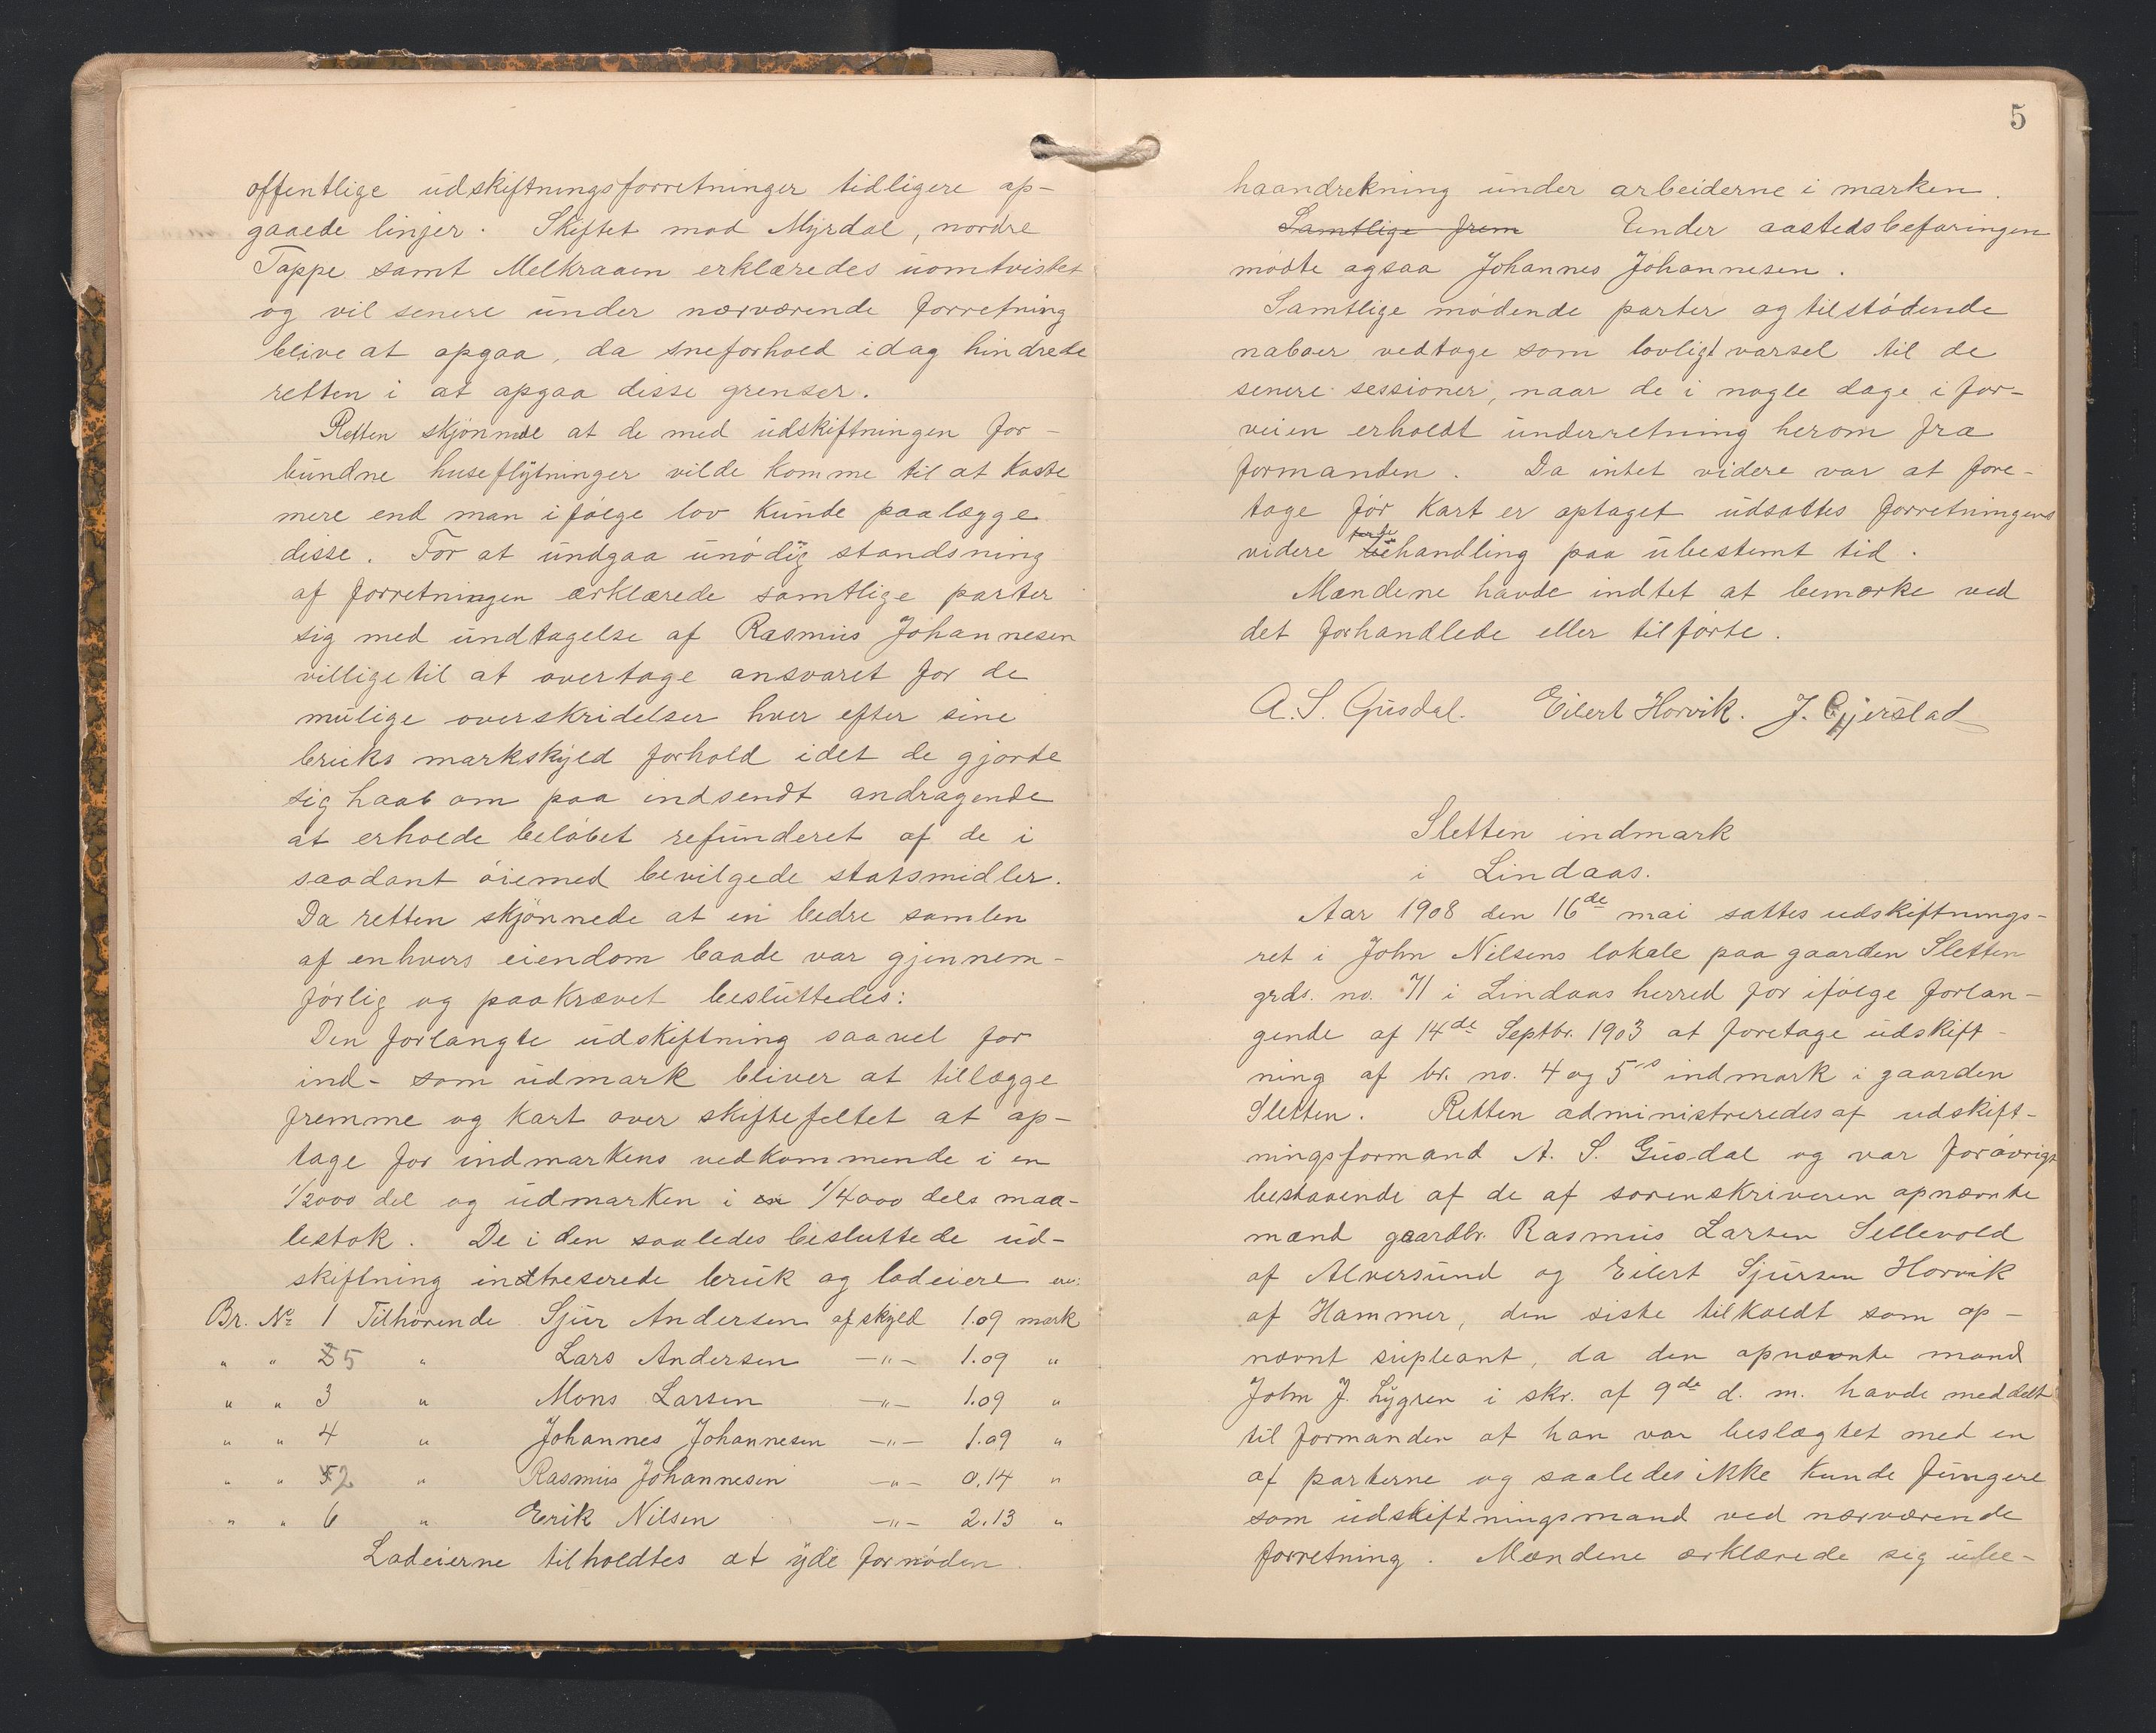 offentlige udskiftningsforretninger tidligere op-
gaaede linjer. Skiftet mod Myrdal, nordre
Tappe samt Melkraaen erklæredes uomtvistet
og vil senere under nærværende forretning
blive at opgaa, da sneforhold idag hindrede
retten i at opgaa disse grenser.
Retten skjønnede at de med udskiftningen for-
bundne huseflytninger vilde komme til at koste
mere end man ifølge lov kunde paalægge
disse. For at undgaa unødig standsning
af forretningen erklærede samtlige parter
sig med undtagelse af Rasmus Johannesen
villige til at overtage ansvaret for de
mulige overskridelser hver efter sine
bruks markskyld forhold idet de gjorde
sig haab om paa indsendt andragende
at erholde beløbet refunderet af de i
saadant øiemed bevilgede statsmidler.
Da retten skjønnede at en bedre samlen
af enhvers eiendom baade var gjennem-
førlig og paakrævet besluttedes:
Den forlangte udskiftning saavel for
ind- som udmark bliver at tillægge
fremme og kart over skiftefeltet at op-
tage for indmarkens vedkommende i en
1/2000 del og udmarken i en 1/4000 dels maa-
lestok. De i den saaledes besluttede ud-
skiftning intreserede bruk og lodeiere er:
Br. No 1 Tilhørende Sjur Andersen af skyld 1.09 mark
" " 2 5 " Lars Andersen -"- 1.09 "
" " 3 " Mons Larsen -"- 1.09 "
" " 4 " Johannes Johannesen -"- 1.09 "
" " 5 2 " Rasmus Johannesen -"- 0.14 "
" " 6 " Erik Nilsen -"- 2.13 "
Lodeierne tilholdtes at yde fornøden
5
haandrekning under arbeiderne i marken.
Samtlige frem Under aastedsbefaringen
mødte ogsaa Johannes Johannesen.
Samtlige mødende parter og tilstødende
naboer vedtoge som lovligt varsel til de
senere sessioner, naar de i nogle dage i for-
veien erholdt underretning herom fra
formanden. Da intet videre var at fore-
tage før kart er optaget udsattes forretningens
videre behandling paa ubestemt tid.
Mændene havde indtet at bemærke ved
det forhandlede eller tilførte.
A. S. Gusdal. Eilert Horvik. J. Gjerstad
Sletten indmark
i Lindaas.
Aar 1908 den 16de mai sattes udskiftnings-
ret i John Nilsens lokale paa gaarden Sletten
grds. no. 71 i Lindaas herred for ifølge forlan-
gende af 14de Septbr. 1903 at foretage udskift-
ning af br. no. 4 og 5s indmark i gaarden
Sletten. Retten administreredes af udskift-
ningsformand A. S. Gusdal og var forøvrigt
bestaaende af de af sorenskriveren opnævnte
mænd gaardbr. Rasmus Larsen Sellevold
af Alversund og Eilert Sjursen Horvik
af Hammer, den siste tilkaldt som op-
nævnt supleant, da den opnævnte mand
John J. Lygren i skr. af 9de d. m. havde meddelt
til formanden at han var beslægtet med en
af parterne og saaledes ikke kunde fungere
som udskiftningsmand ved nærværende
forretning. Mændene erklærede sig ube-